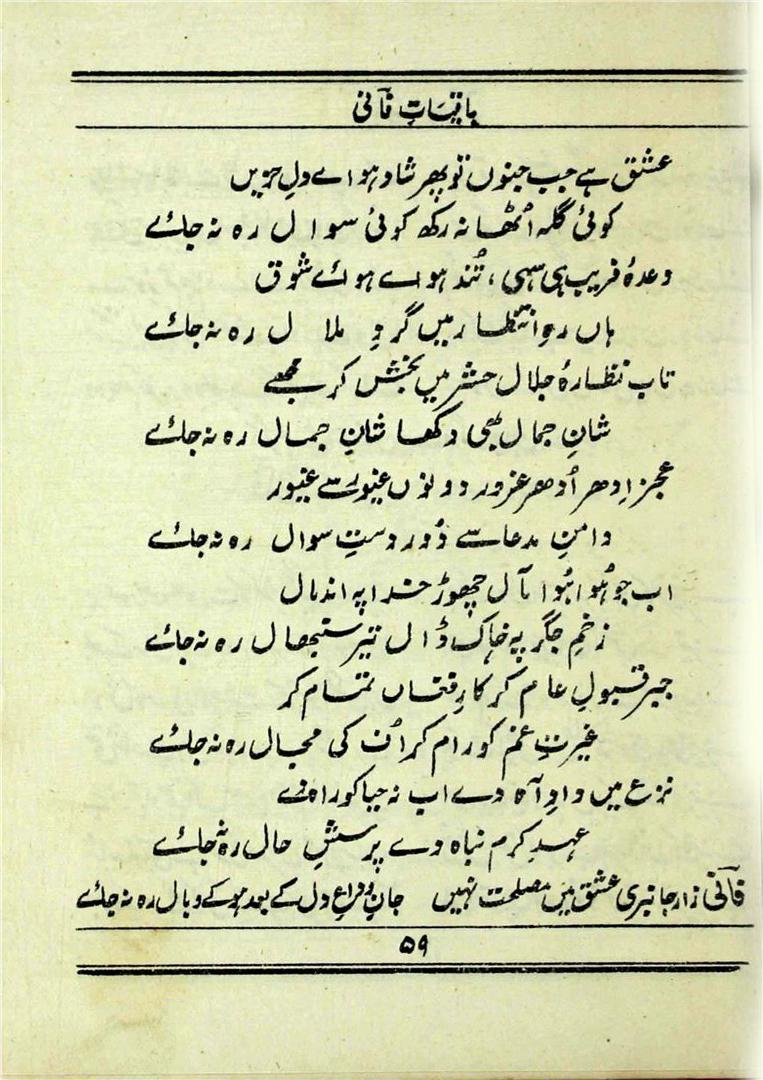 باقیاتِ فانی
عشق ہے جب جنوں تو پھر شاد ہو اے دلِ حزیں
کوئی گلہ اُٹھا نہ رکھ کوئی سوال رہ نہ جائے
وعدۂ فریب ہی سہی، تُند ہو اے ہوائے شوق
ہاں رہِ انتظار میں گردِ ملال رہ نہ جائے
تاب نظارۂ جلال حشر میں بخش کر مجھے
شانِ جمال بھی دکھا شانِ جمال رہ نہ جائے
عجز اِدھر اُدھر غرور دونوں غیور سے غیور
دامنِ مدعا سے دُور دستِ سوال رہ نہ جائے
اب جو ہُوا ہُوا مآل چھوڑ خدا پہ اندمال
زخمِ جگر پہ خاک ڈال تیر سنبھال رہ نہ جائے
جبر قبولِ عام کر کارِ فغاں تمام کر
غیرتِ غم کو رام کر اُن کی مجال رہ نہ جائے
نزع میں دادِ آہ دے اب نہ حیا کو راہ دے
عہدِ کرم نباہ دے پرسشِ حال رہ نہ جائے
فانی زار جانبری عشق میں مصلحت نہیں جان وداعِ دل کے بعد ہو کے وبال رہ نہ جائے
۵۹